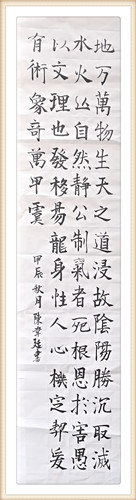 地万物生天之道浸故陰陽勝沉取滅
水火公自然静公制氣者死根恩於害愚
以文理也發移易龍身性人心機定契爰
有術象奇萬甲霊
甲辰秋月陳書